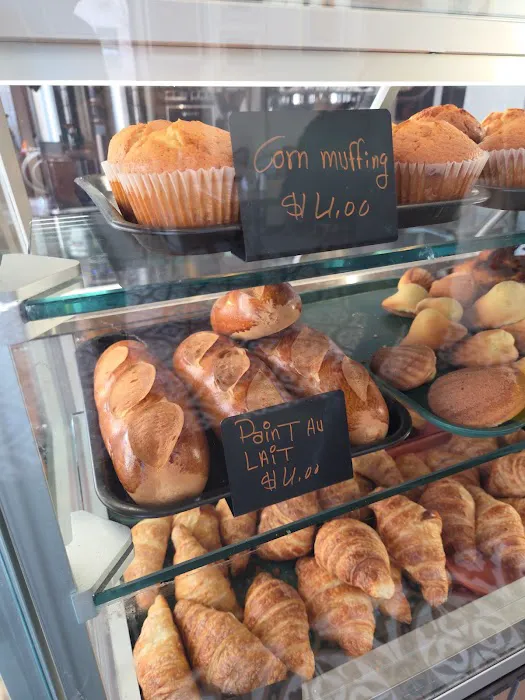 Corn muffing
$4.00
PainT Au
LAiT
$4.00